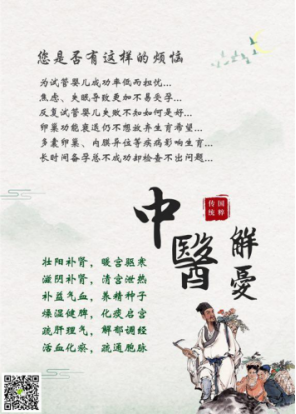 您是否有这样的烦恼
为试管婴儿成功率低而担忧...
焦虑、失眠导致更加不易受孕...
反复试管婴儿失败不知如何是好...
卵巢功能衰退仍不想放弃生育希望...
多囊卵巢、内膜异位等疾病影响生育...
长时间备孕总不成功却检查不出问题...
传统
国粹
中醫
解憂
壮阳补肾，暖宫驱寒
滋阴补肾，清宫泄热
补益气血，养精种子
燥湿健脾，化痰启宫
疏肝理气，解郁调经
活血化瘀，疏通胞脉